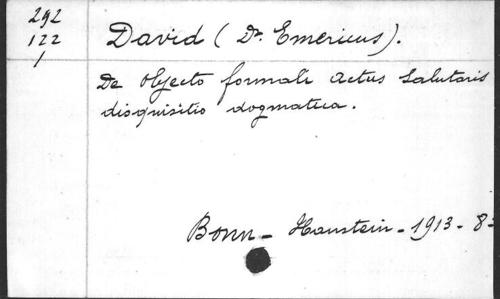 292
122
1
David (Dr. Emericus).
De Objecto formali actus Salutaris
disquisitio dogmatica.
Bonn - Hanstein - 1913 - 8